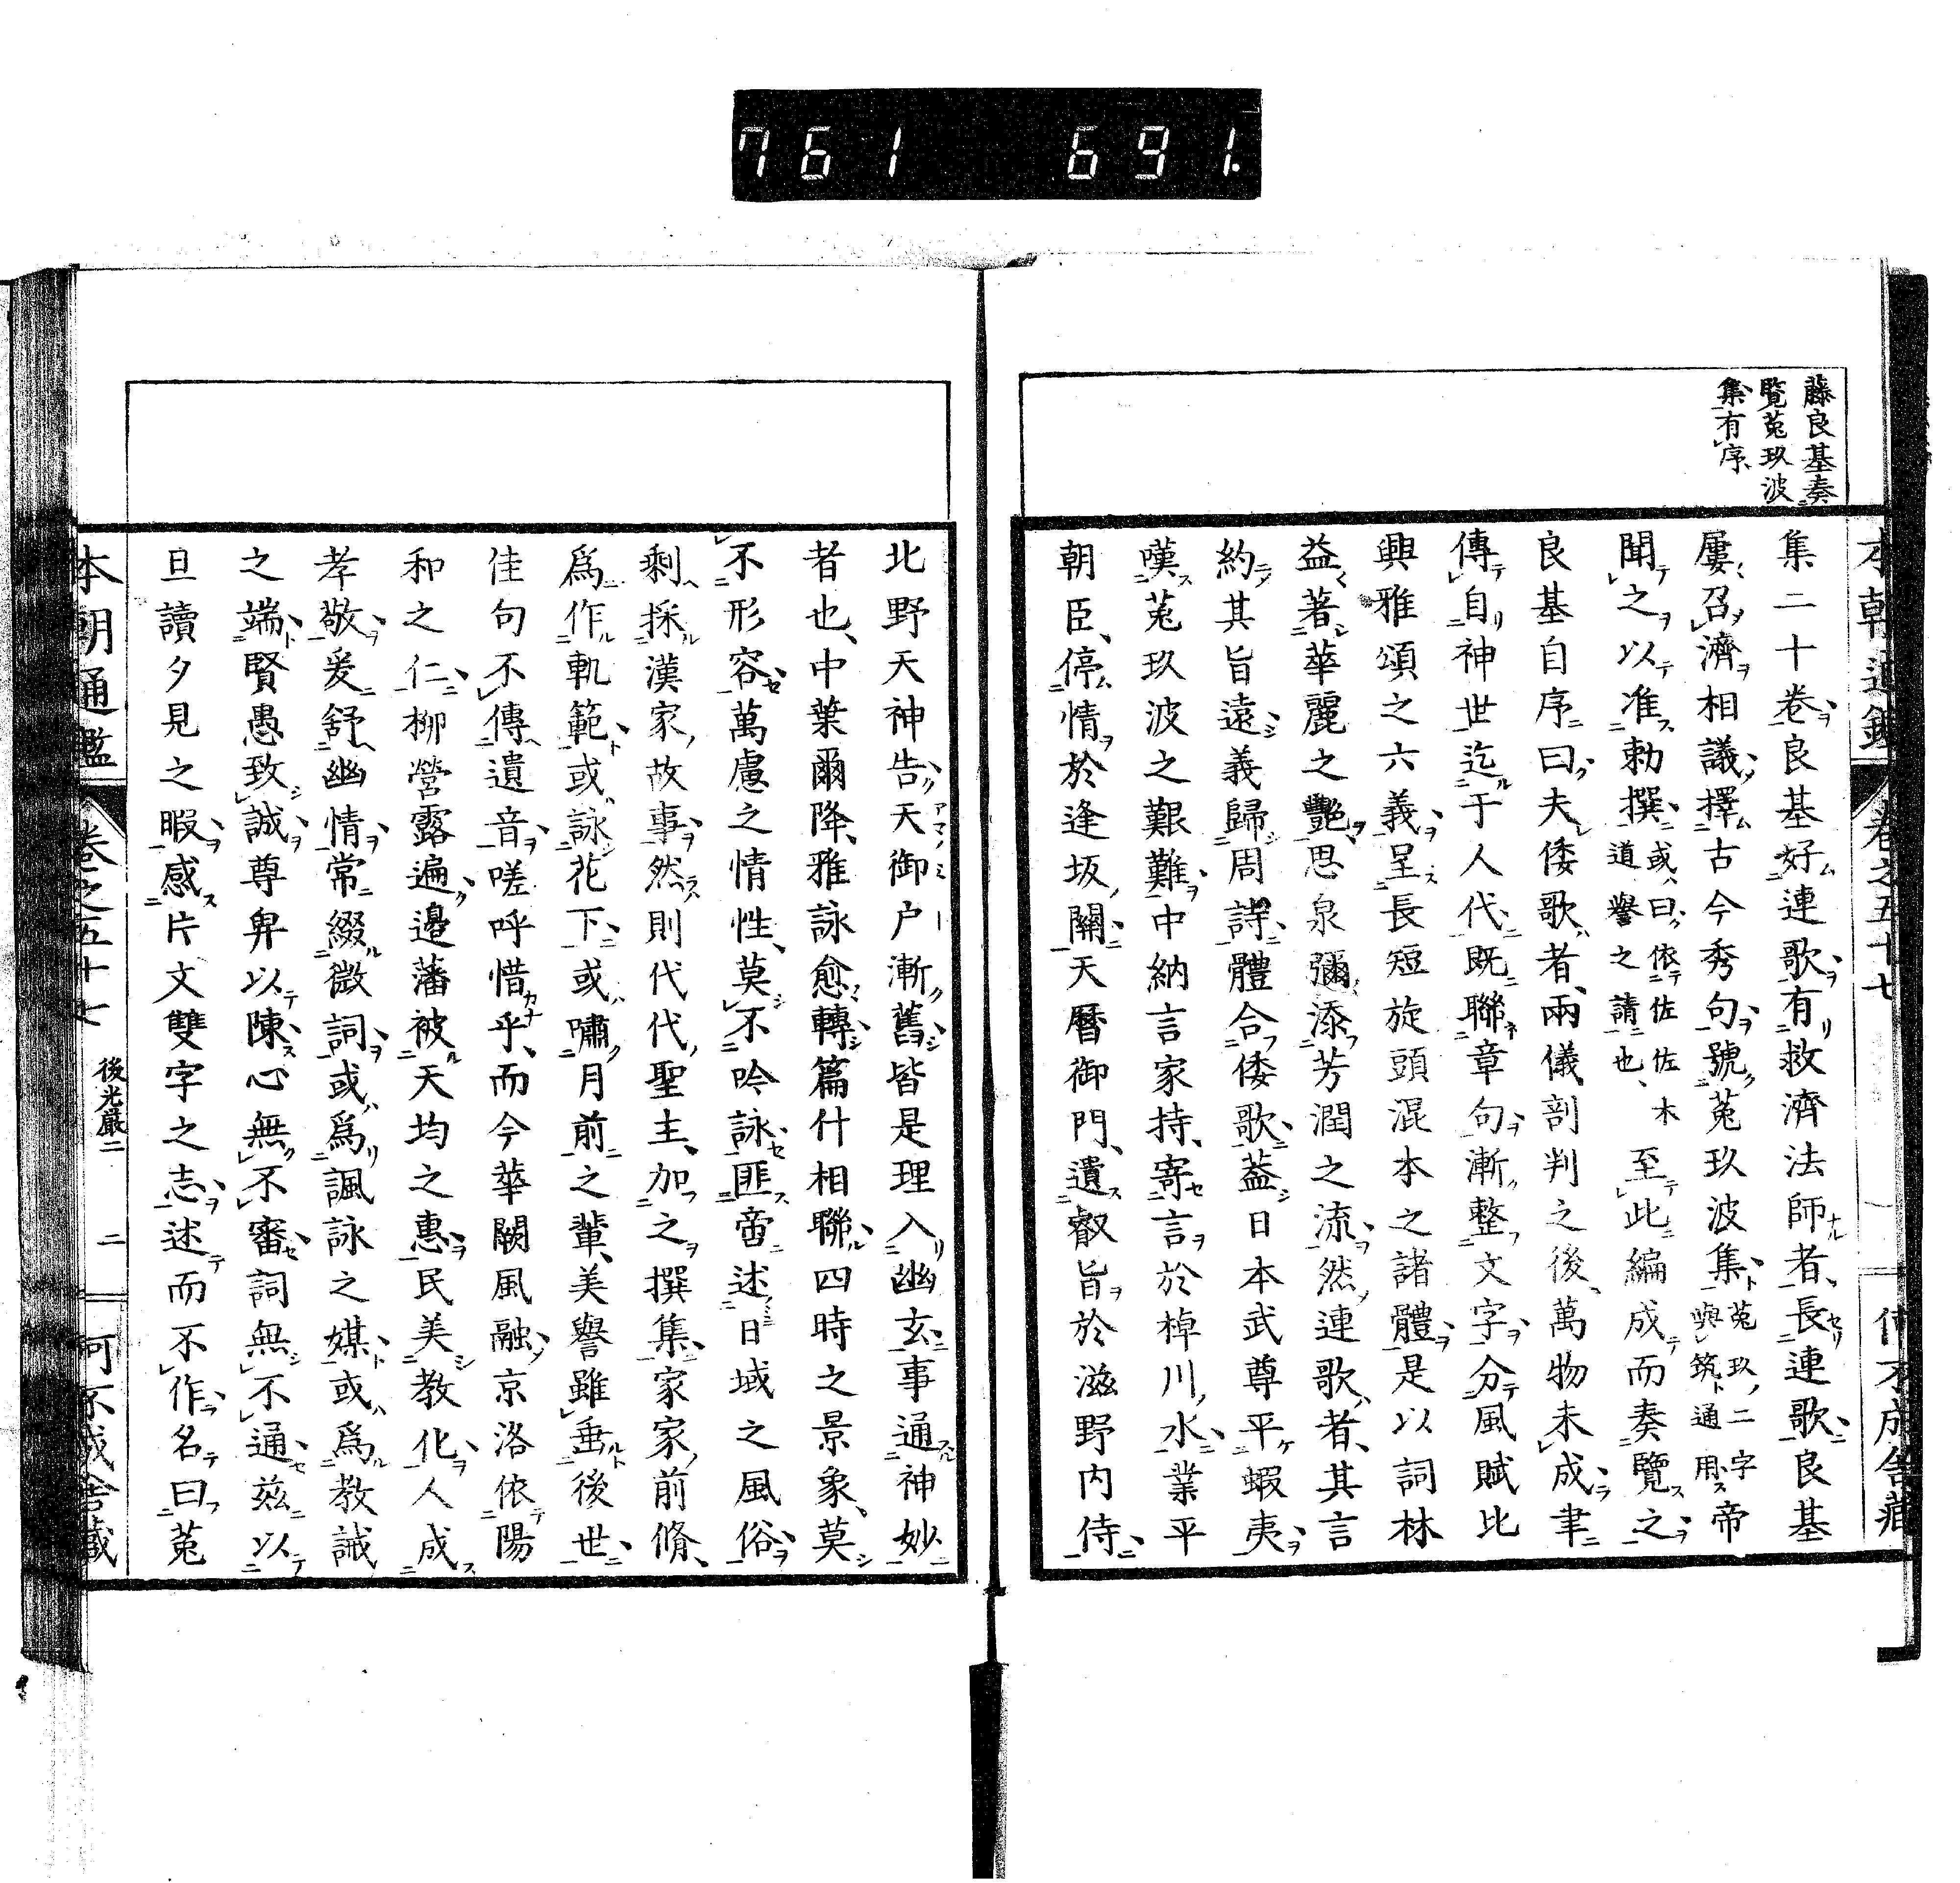 761 691.
藤良基奏
覽菟玖波
集有序
集二十卷良基好連歌有救濟法師者長連歌良基
屢召濟相議擇古今秀句號菟玖波集菟玖二字與筑通用帝
聞之以准勅撰或曰依佐佐木道譽之請也至此編成而奏覽之
良基自序曰夫倭歌者兩儀剖判之後萬物未成聿
傳自神世迄于人代既聯章句漸整文字分風賦比
興雅頌之六義呈長短旋頭混本之諸體是以詞林
益著華麗之艷思泉彌添芳潤之流然連歌者其言
約其旨遠義歸周詩體合倭歌葢日本武尊平蝦夷
嘆菟玖波之艱難中納言家持寄言於棹川水業平
朝臣停情於逢坂關天曆御門遺叡旨於滋野內侍
北野天神告天御户漸舊皆是理入幽玄事通神妙
者也中葉爾降雅詠愈轉篇什相聯四時之景象莫
不形容萬慮之情性莫不吟詠匪啻述日域之風俗
剩採漢家故事然則代代聖主加之撰集家家前脩
爲作軌範或詠花下或嘯月前之輩美譽雖垂後世
佳句不傳遺音嗟呼惜乎而今華闕風融京洛依陽
和之仁柳營露遍邊藩被天均之惠民美教化人成
孝敬爰舒幽情常綴微詞或爲諷詠之媒或爲教誡
之端賢愚致誠尊卑以陳心無不審詞無不通茲以
旦讀夕見之暇感片文雙字之志述而不作名曰菟
本朝通鑑 卷之五十七 後光嚴二 二